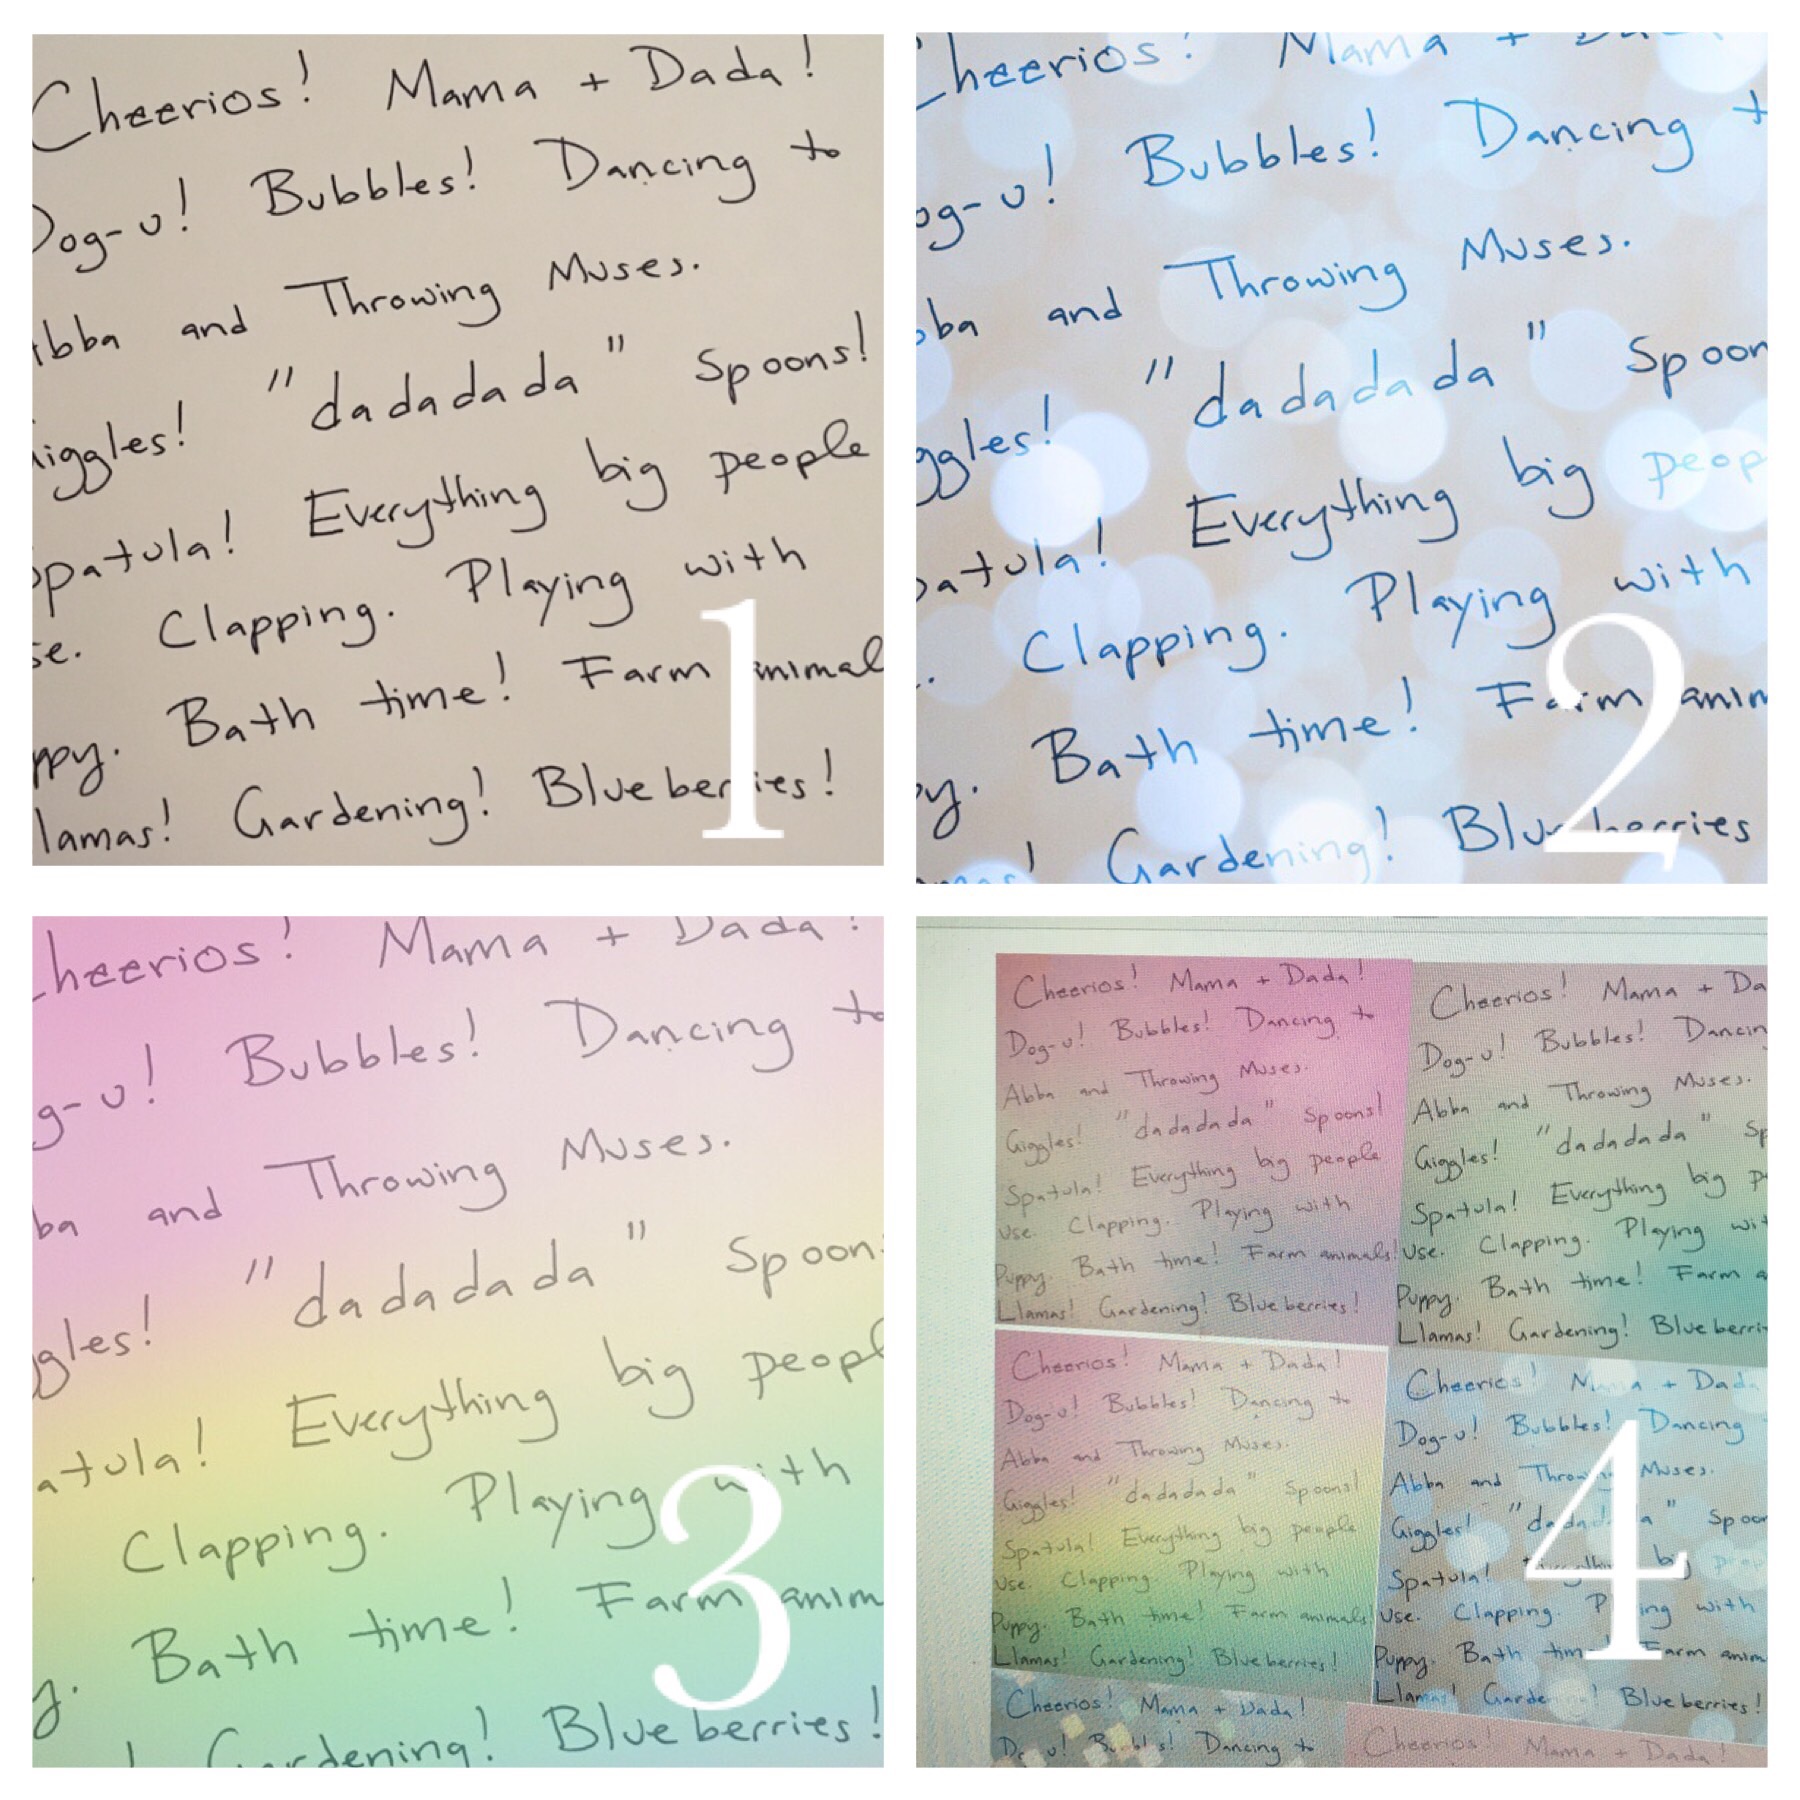 Cheerios! Mama + Dada!
Dog-u! Bubbles! Dancing to
Abba and Throwing Muses.
iggles! "dadadada" Spoons!
Spatula! Everything big people
se. Clapping. Playing with
ppy. Bath time! Farm animal
lamas! Gardening! Blueberries!
1
Cheerios! Mama + Da
og-u! Bubbles! Dancing t
bba and Throwing Muses.
ggles! "dadadada" Spoon
patula! Everything big peop
. Clapping. Playing with
py. Bath time! Farm anim
mas! Gardening! Blueberries
2
Cheerios! Mama + Dada!
g-u! Bubbles! Dancing to
ba and Throwing Muses.
ggles! "dadadada" Spoon
atula! Everything big peopl
Clapping. Playing with
y. Bath time! Farm anim
! Gardening! Blueberries!
3
Cheerios! Mama + Dada!
Dog-u! Bubbles! Dancing to
Abba and Throwing Muses.
Giggles! "dadadada" Spoons!
Spatula! Everything big people
use. Clapping. Playing with
Puppy. Bath time! Farm animals!
Llamas! Gardening! Blueberries!
Cheerios! Mama + Da
Dog-u! Bubbles! Dancin
Abba and Throwing Muses.
Giggles! "dadadada" Sp
Spatula! Everything big p
use. Clapping. Playing wit
Puppy. Bath time! Farm a
Llamas! Gardening! Blueberri
Cheerios! Mama + Dada!
Dog-u! Bubbles! Dancing to
Abba and Throwing Muses.
Giggles! "dadadada" Spoons!
Spatula! Everything big people
use. Clapping. Playing with
Puppy. Bath time! Farm animals!
Llamas! Gardening! Blueberries!
Cheerios! Mama + Dada
Dog-u! Bubbles! Dancing
Abba and Throwing Muses.
Giggles! "dadadada" Spoon
Spatula! Everything big peop
use. Clapping. Playing with
Puppy. Bath time! Farm anim
Llamas! Gardening! Blueberries!
Cheerios! Mama + Dada!
Dog-u! Bubbles! Dancing to
Cheerios! Mama + Dada!
4